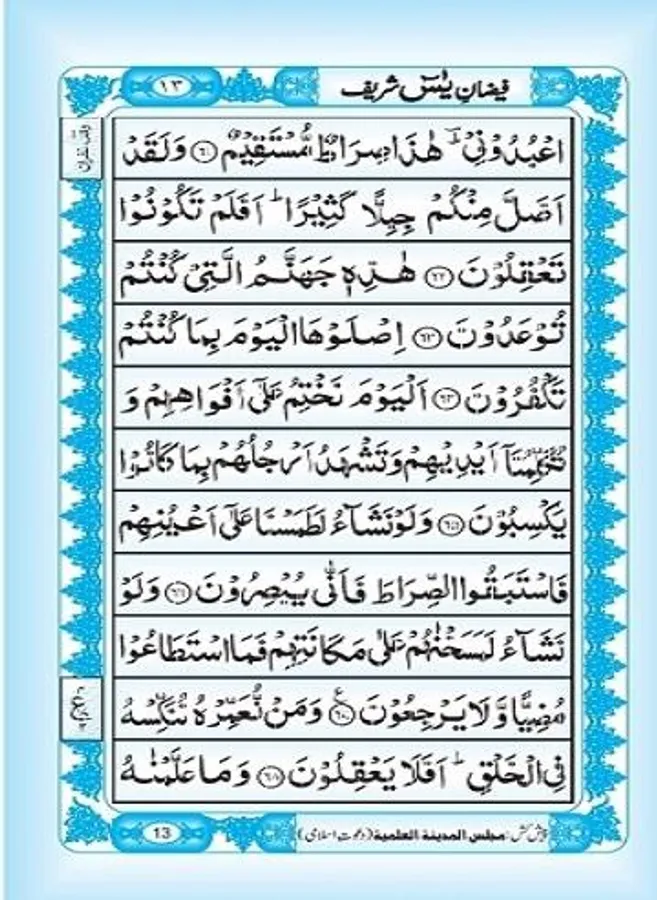 فیضانِ یٰسٓ شریف ١٣
اعْبُدُوْنِیْ ؕ هٰذَا صِرَاطٌ مُّسْتَقِیْمٌ ﴿٦١﴾ وَ لَقَدْ
اَضَلَّ مِنْكُمْ جِبِلًّا كَثِیْرًا ؕ اَفَلَمْ تَكُوْنُوْا
تَعْقِلُوْنَ ﴿٦٢﴾ هٰذِهٖ جَهَنَّمُ الَّتِیْ كُنْتُمْ
تُوْعَدُوْنَ ﴿٦٣﴾ اِصْلَوْهَا الْیَوْمَ بِمَا كُنْتُمْ
تَكْفُرُوْنَ ﴿٦٤﴾ اَلْیَوْمَ نَخْتِمُ عَلٰۤی اَفْوَاهِهِمْ وَ
تُكَلِّمُنَاۤ اَیْدِیْهِمْ وَ تَشْهَدُ اَرْجُلُهُمْ بِمَا كَانُوْا
یَكْسِبُوْنَ ﴿٦٥﴾ وَ لَوْ نَشَآءُ لَطَمَسْنَا عَلٰۤی اَعْیُنِهِمْ
فَاسْتَبَقُوا الصِّرَاطَ فَاَنّٰی یُبْصِرُوْنَ ﴿٦٦﴾ وَ لَوْ
نَشَآءُ لَمَسَخْنٰهُمْ عَلٰی مَكَانَتِهِمْ فَمَا اسْتَطَاعُوْا
مُضِیًّا وَّ لَا یَرْجِعُوْنَ ﴿٦٧﴾ وَ مَنْ نُّعَمِّرْهُ نُنَكِّسْهُ
فِی الْخَلْقِ ؕ اَفَلَا یَعْقِلُوْنَ ﴿٦٨﴾ وَ مَا عَلَّمْنٰهُ
پیش کش: مجلس المدینة العلمیة (دعوت اسلامی) 13